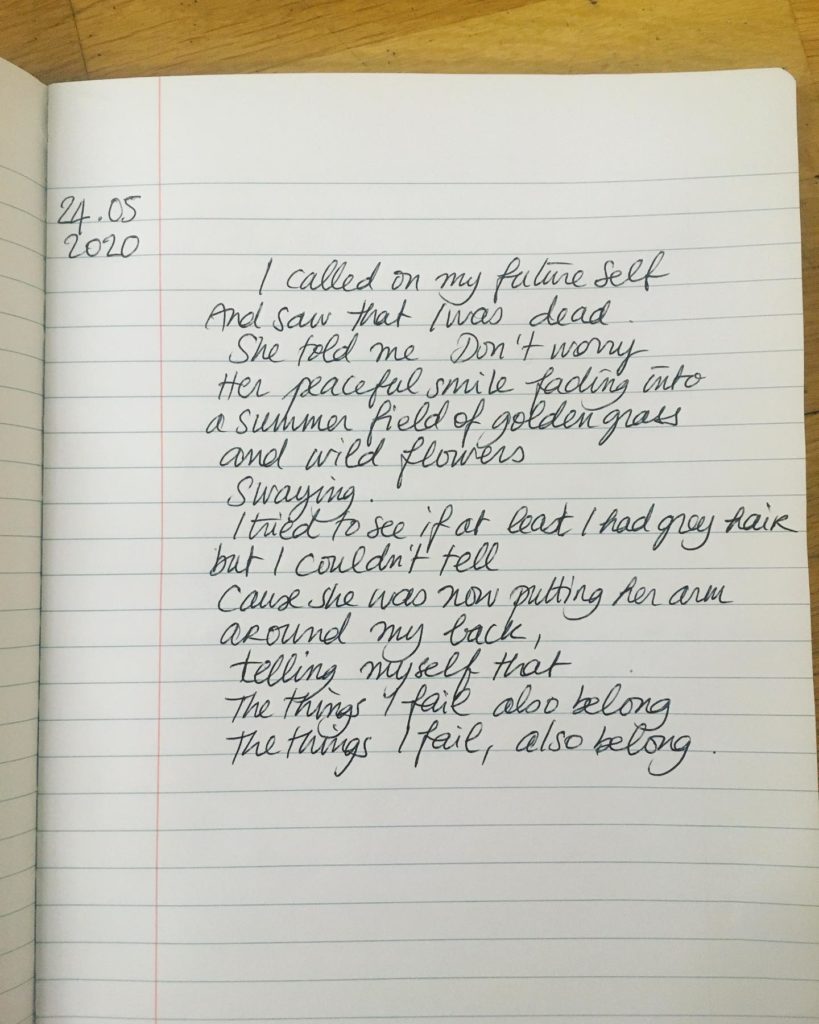 24.05
2020
I called on my future self
And saw that I was dead.
She told me Don't worry
Her peaceful smile fading into
a summer field of golden grass
and wild flowers
Swaying.
I tried to see if at least I had grey hair
but I couldn't tell
Cause she was now putting her arm
around my back,
telling myself that
The things I fail also belong
The things I fail, also belong.